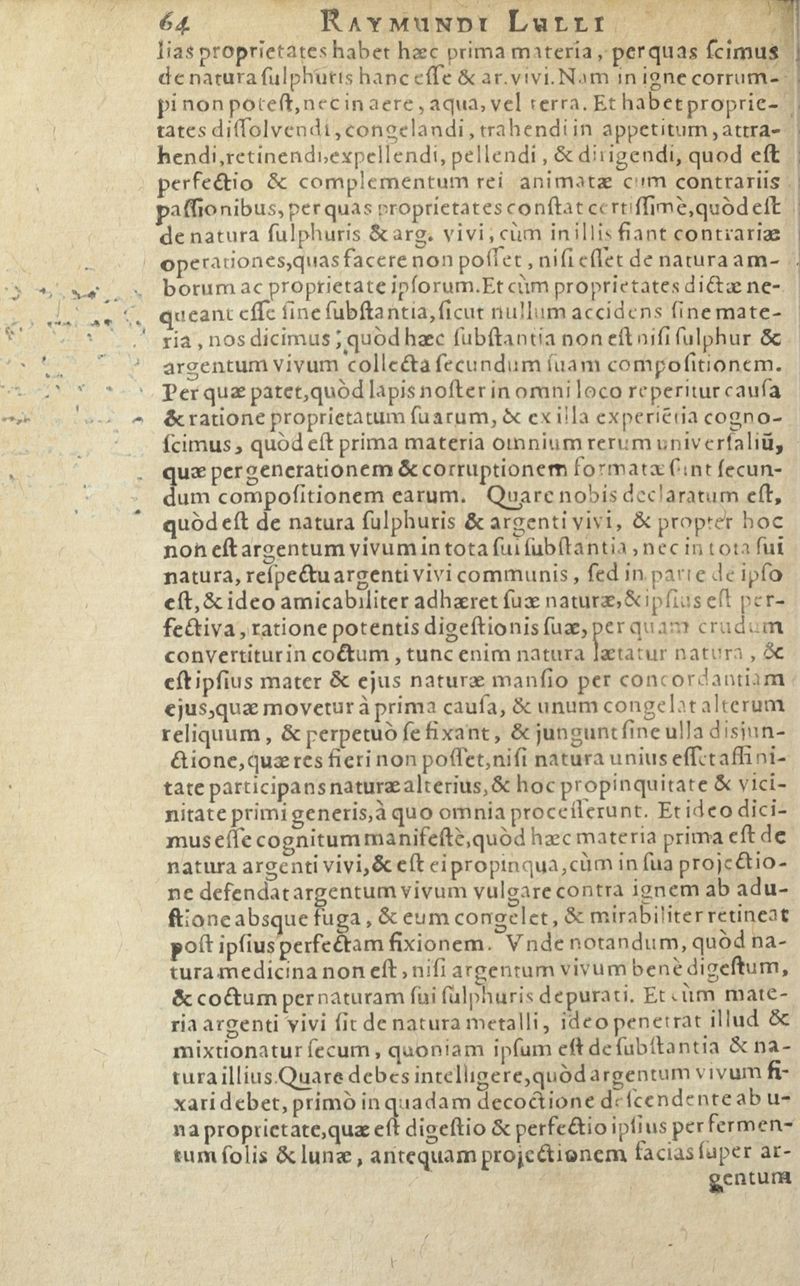 64 RAYMUNDI LULLI
lias proprietates habet hæc prima materia, per quas scimus
de natura sulphuris hanc esse & ar. vivi. Nam in igne corrum-
pi non potest, nec in aere, aqua, vel terra. Et habet proprie-
tates dissolvendi, congelandi, trahendi in appetitum, attra-
hendi, retinendi, expellendi, pellendi, & dirigendi, quod est
perfectio & complementum rei animatæ cum contrariis
passionibus, per quas proprietates constat certissimè, quòd est
de natura sulphuris & arg. vivi, cùm in illis fiant contrariæ
operationes, quas facere non posset, nisi esset de natura am-
borum ac proprietate ipsorum. Et cùm proprietates dictæ ne-
queant esse sine substantia, sicut nullum accidens sine mate-
ria, nos dicimus, quòd hæc substantia non est nisi sulphur &
argentum vivum collecta secundum suam compositionem.
Per quæ patet, quòd lapis noster in omni loco reperitur causa
& ratione proprietatum suarum, & ex illa experiētia cogno-
scimus, quòd est prima materia omnium rerum universaliū,
quæ per generationem & corruptionem formatæ sunt secun-
dum compositionem earum. Quare nobis declaratum est,
quòd est de natura sulphuris & argenti vivi, & propter hoc
non est argentum vivum in tota sui substantia, nec in tota sui
natura, respectu argenti vivi communis, sed in parte de ipso
est, & ideo amicabiliter adhæret suæ naturæ, & ipsius est per-
fectiva, ratione potentis digestionis suæ, per quam crudum
convertitur in coctum, tunc enim natura lætatur natura, &
est ipsius mater & ejus naturæ mansio per concordantiam
ejus, quæ movetur à prima causa, & unum congelat alterum
reliquum, & perpetuò se fixant, & junguntsine ulla disjun-
ctione, quæ res fieri non posset, nisi natura unius esset affini-
tate participans naturæ alterius, & hoc propinquitate & vici-
nitate primi generis, à quo omnia processerunt. Et ideo dici-
mus esse cognitum manifestè, quòd hæc materia prima est de
natura argenti vivi, & est ei propinqua, cùm in sua projectio-
ne defendat argentum vivum vulgare contra ignem ab adu-
stione absque fuga, & eum congelet, & mirabiliter retineat
post ipsius perfectam fixionem. Vnde notandum, quòd na-
tura medicina non est, nisi argentum vivum benè digestum,
& coctum per naturam sui sulphuris depurati. Et cùm mate-
ria argenti vivi sit de natura metalli, ideo penetrat illud &
mixtionatur secum, quoniam ipsum est de substantia & na-
tura illius. Quare debes intelligere, quòd argentum vivum fi-
xari debet, primò in quadam decoctione descendente ab u-
na proprietate, quæ est digestio & perfectio ipsius per fermen-
tum solis & lunæ, antequam projectionem facias super ar-
gentum